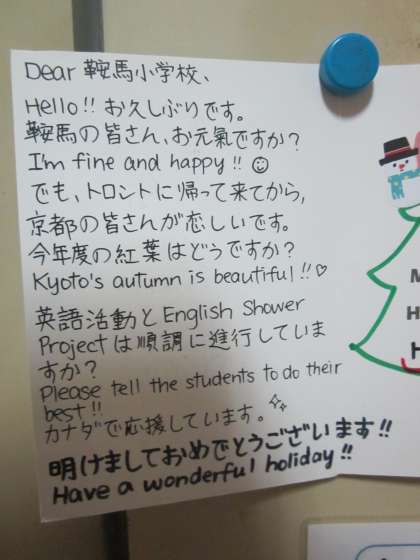 Dear 鞍馬小学校、
Hello!! お久しぶりです。
鞍馬の皆さん、お元氣ですか?
I'm fine and happy!! ☺
でも、トロントに帰って来てから,
京都の皆さんが恋しいです。
今年度の紅葉はどうですか?
Kyoto's autumn is beautiful!! ♡
英語活動と English Shower
Project は順調に進行していま
すか?
Please tell the students to do their
best!!
カナダで応援しています。
明けましておめでとうございます!!
Have a wonderful holiday!!
M
H
H